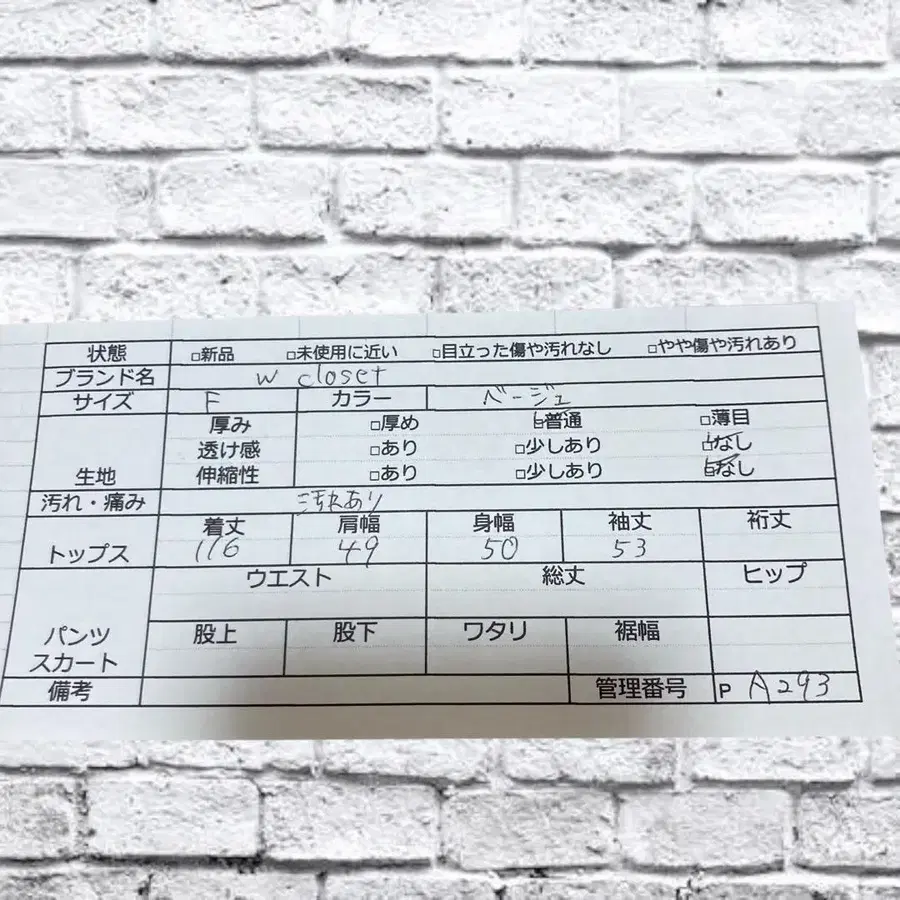 状態 □新品 □未使用に近い □目立った傷や汚れなし □やや傷や汚れあり
ブランド名 w closet
サイズ F カラー ベージュ
厚み □厚め □普通 □薄目
透け感 □あり □少しあり □なし
生地 伸縮性 □あり □少しあり □なし
汚れ・痛み 汚れあり
着丈 肩幅 身幅 袖丈 裄丈
トップス 116 49 50 53
ウエスト 総丈 ヒップ
パンツ 股上 股下 ワタリ 裾幅
スカート
備考 管理番号 P A293